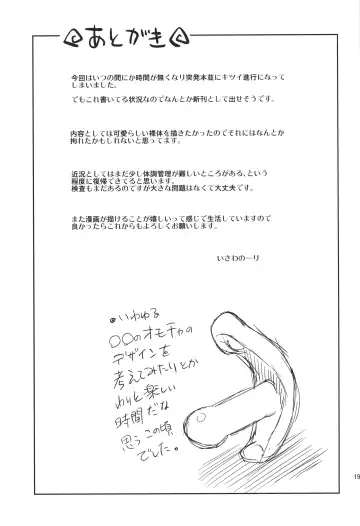 あとがき
今回はいつの間にか時間が無くなり突発本並にキツイ進行になって
しまいました。
でもこれ書いてる状況なのでなんとか新刊として出せそうです。
内容としては可愛らしい裸体を描きたかったのでそれにはなんとか
拘れたかもしれないと思ってます。
近況としてはまだ少し体調管理が難しいところがある、という
程度に復帰できてると思います。
検査もまだあるのですが大きな問題はなくて大丈夫です。
また漫画が描けることが嬉しいって感じで生活していますので
良かったらこれからもよろしくお願いします。
いさわのーり
●いわゆる
○○のオモチャの
デザインを
考えてみたりとか
わりと楽しい
時間だな
思うこの頃
でした。
19